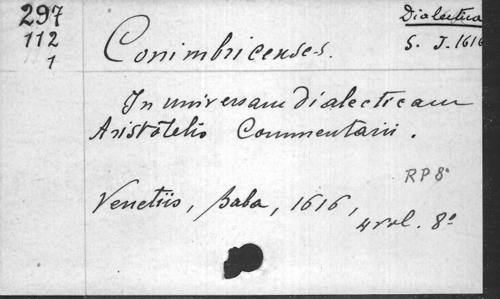 297
112
1
Dialectica
S. J. 1616
Conimbricenses.
In universam dialecticam
Aristotelis Commentarii.
RP 8°
Venetiis, Baba, 1616,
4 vol. 8°